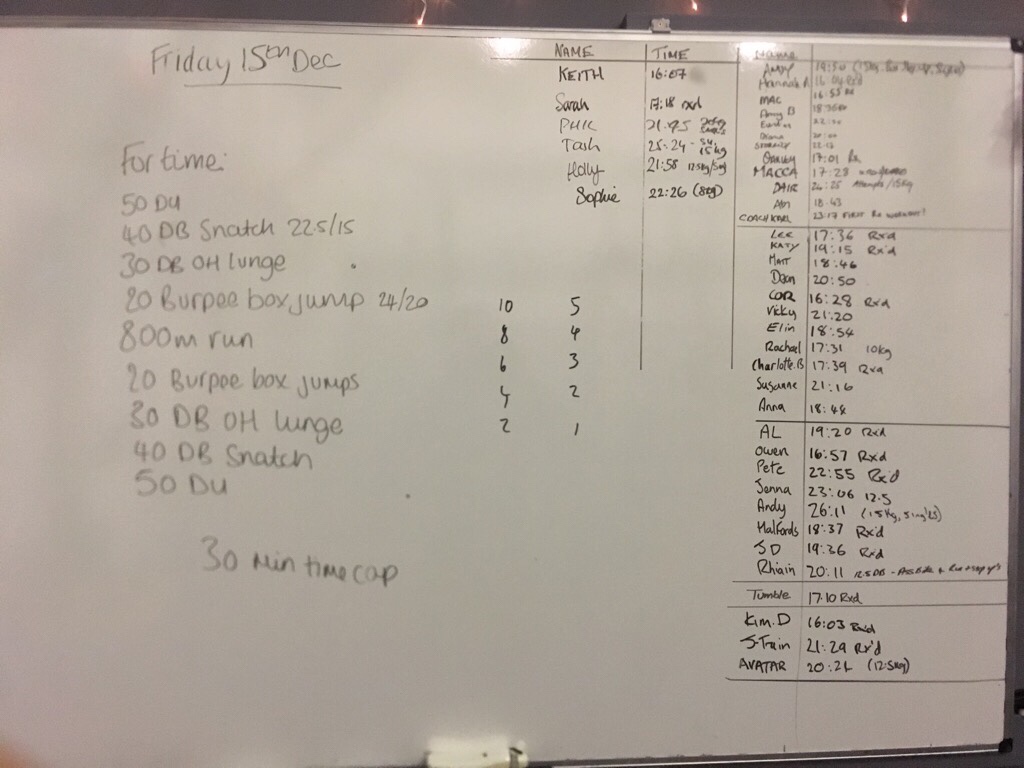 Friday 15th Dec
For time:
50 DU
40 DB Snatch 22.5/15
30 DB OH lunge
20 Burpee box jump 24/20
800m run
20 Burpee box jumps
30 DB OH lunge
40 DB Snatch
50 DU
30 min time cap
10 5
8 4
6 3
4 2
2 1
NAME TIME
KEITH 16:07
Sarah 17:18 rxd
PHIL 21:45
Tash 25:24 15kg
Holly 21:58 12.5kg/
Sophie 22:26 (8kg)
Name
ANDY 19:50
Hannah
MAC 16:55 Rx
Amy B
17:01 Rx
MACCA 17:28
DAIR 24:25 Attempts/15kg
18:43
COACH 23:17 FIRST Rx WORKOUT!
LEE 17:36 Rxd
KATY 19:15 Rx'd
MATT 18:46
Dan 20:50
COR 16:28 Rxd
Vicky 21:20
Elin 18:54
Rachael 17:31 10kg
Charlotte.B 17:39 Rxd
Susanne 21:16
Anna 18:48
AL 19:20 Rxd
Owen 16:57 Rxd
Pete 22:55 Rx'd
Jenna 23:06 12.5
Andy 26:11 (15kg, singles)
Halfords 18:37 Rx'd
JD 19:36 Rxd
Rhiain 20:11
Tumble 17.10 Rxd
Kim.D 16:03 Rxd
J-Train 21:29 Rx'd
AVATAR 20:21 (12.5kg)